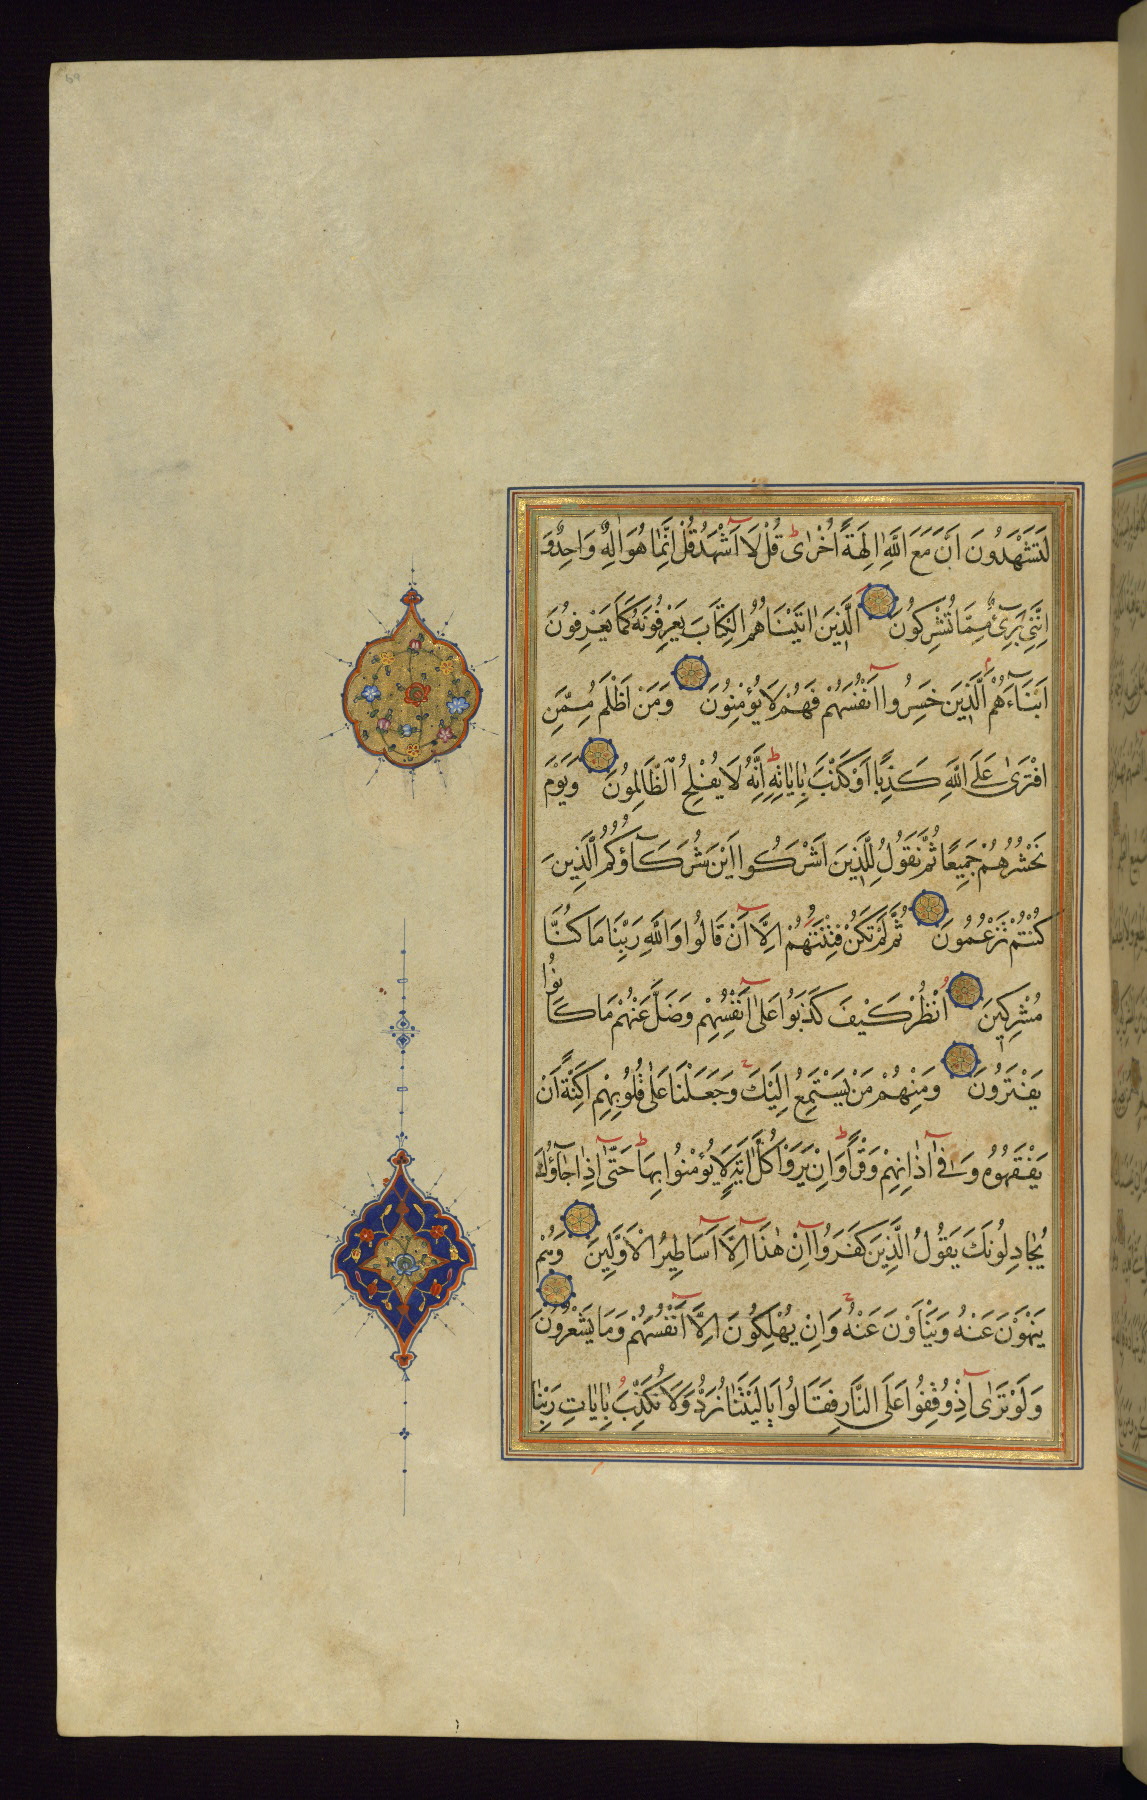 لَتَشْهَدُونَ اَنَّ مَعَ اللَّهِ اٰلِهَةً اُخْرٰى ط قُلْ لَا اَشْهَدُ قُلْ اِنَّمَا هُوَ اِلٰهٌ وَاحِدٌ وَ
اِنَّنِى بَرِىٓءٌ مِمَّا تُشْرِكُونَ اَلَّذِينَ اٰتَيْنَاهُمُ الْكِتَابَ يَعْرِفُونَهُ كَمَا يَعْرِفُونَ
اَبْنَآءَهُمْ اَلَّذِينَ خَسِرُوا اَنْفُسَهُمْ فَهُمْ لَا يُؤْمِنُونَ وَمَنْ اَظْلَمُ مِمَّنِ
افْتَرٰى عَلَى اللَّهِ كَذِبًا اَوْ كَذَّبَ بِاٰيَاتِهِ ط اِنَّهُ لَا يُفْلِحُ الظَّالِمُونَ وَيَوْمَ
نَحْشُرُهُمْ جَمِيعًا ثُمَّ نَقُولُ لِلَّذِينَ اَشْرَكُوا اَيْنَ شُرَكَآؤُكُمُ الَّذِينَ
كُنْتُمْ تَزْعُمُونَ ثُمَّ لَمْ تَكُنْ فِتْنَتُهُمْ اِلَّا اَنْ قَالُوا وَاللَّهِ رَبِّنَا مَا كُنَّا
مُشْرِكِينَ اُنْظُرْ كَيْفَ كَذَبُوا عَلٰى اَنْفُسِهِمْ وَضَلَّ عَنْهُمْ مَا كَانُوا
يَفْتَرُونَ وَمِنْهُمْ مَنْ يَسْتَمِعُ اِلَيْكَ وَجَعَلْنَا عَلٰى قُلُوبِهِمْ اَكِنَّةً اَنْ
يَفْقَهُوهُ وَفِى اٰذَانِهِمْ وَقْرًا ط وَاِنْ يَرَوْا كُلَّ اٰيَةٍ لَا يُؤْمِنُوا بِهَا ط حَتّٰى اِذَا جَآؤُكَ
يُجَادِلُونَكَ يَقُولُ الَّذِينَ كَفَرُوا اِنْ هٰذَا اِلَّا اَسَاطِيرُ الْاَوَّلِينَ وَهُمْ
يَنْهَوْنَ عَنْهُ وَيَنْاَوْنَ عَنْهُ وَاِنْ يُهْلِكُونَ اِلَّا اَنْفُسَهُمْ وَمَا يَشْعُرُونَ
وَلَوْ تَرٰى اِذْ وُقِفُوا عَلَى النَّارِ فَقَالُوا يَا لَيْتَنَا نُرَدُّ وَلَا نُكَذِّبُ بِاٰيَاتِ رَبِّنَا